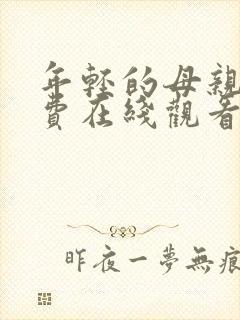 年輕的母親
費在綫觀看
昨夜一夢無痕